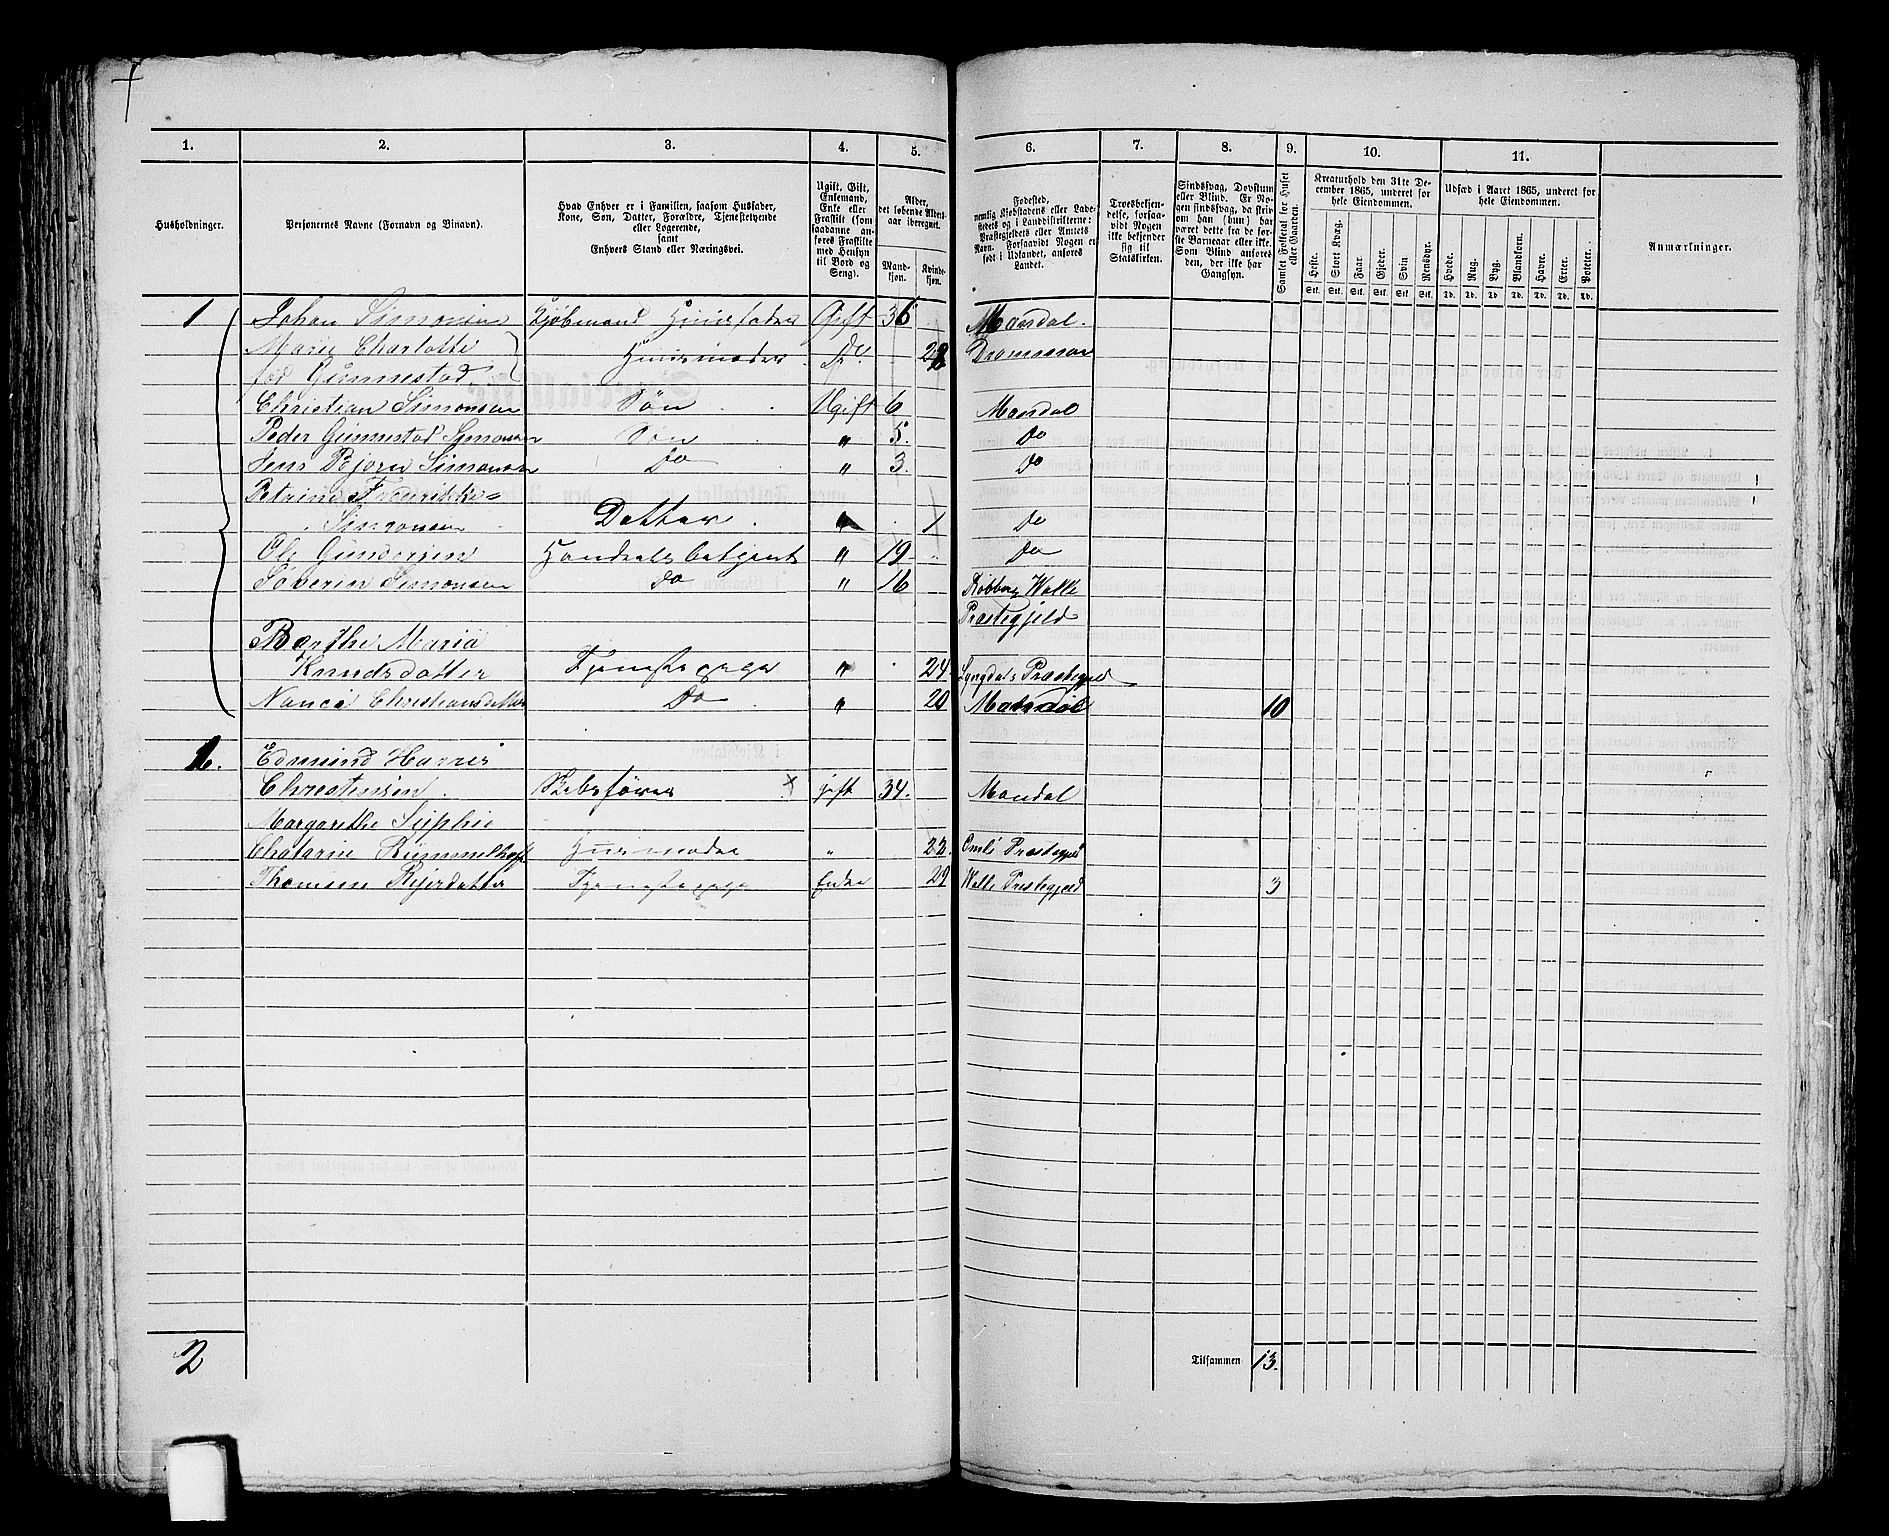 1. 2. 3. 4. 5. 6. 7. 8. 9. 10. 11.
Husholdninger.
Personernes Navne (Fornavn og Binavn).
Hvad Enhver er i Familien, saasom Husfader,
Kone, Søn, Datter, Forældre, Tjenestetyende
eller Logerende,
samt
Enhvers Stand eller Næringsvei.
Ugift, Gift,
Enkemand,
Enke eller
Fraskilt (som
saadanne an-
føres Fraskilte
med Hensyn
til Bord og
Seng).
Alder,
det løbende Alders-
aar iberegnet.
Mand-
kjøn.
Kvinde-
kjøn.
Fødested,
nemlig Kjøbstadens eller Lade-
stedets og i Landdistrikterne:
Præstegjeldets eller Amtets
Navn. Forsaavidt Nogen er
født i Udlandet, anføres
Landet.
Troesbekjen-
delse, forsaa-
vidt Nogen
ikke bekjender
sig til
Statskirken.
Sindssvag, Døvstum
eller Blind. Er No-
gen sindssvag, da skriv
om han (hun) har
været dette fra de før-
ste Barneaar eller ikke.
Som Blind anføres
den, der ikke har
Gangsyn.
Samlet Folketal for Huset
eller Gaarden.
Kreaturhold den 31te De-
cember 1865, underet for
hele Eiendommen.
Heste. Stort Kvæg. Faar. Gjeder. Svin. Rensdyr.
Stk. Stk. Stk. Stk. Stk. Stk.
Udsæd i Aaret 1865, underet for
hele Eiendommen.
Hvede. Rug. Byg. Blandkorn. Havre. Erter. Poteter.
Td. Td. Td. Td. Td. Td. Td.
Anmærkninger.
1 Johan Simonsen Kjøbmand Huusfader Gift 36 Mandal.
Marie Charlotte Huusmoder Do 28 Drammen
fød Gunnestad
Christian Simonsen Søn Ugift 6 Mandal
Peder Gunnestad Simonsen Søn " 5. Do
Jens Bjorn Simonsen Do " 3. Do
Petrine Frederikke=
Simonsen Datter " 1 Do
Ole Gundersen Handelsbetjent " 19 Do
Søverin Simonsen Do " 16 Halle
Præstegjeld
Berthe Maria
Knudsdatter Tjenestepige " 24 Lyngdals Præstegjeld
Nance Christiansdatter Do " 20 Mandal 10
1. Edmund Harris
Christensen Skibsfører x gift 34. Mandal
Margarethe Sophie
Chatarine Rummelhoff Huusmoder " 22. Omli Præstegjeld
Thomsen Tjenestepige Enke 29 Halle Præstegjeld 3
2 Tilsammen 13.